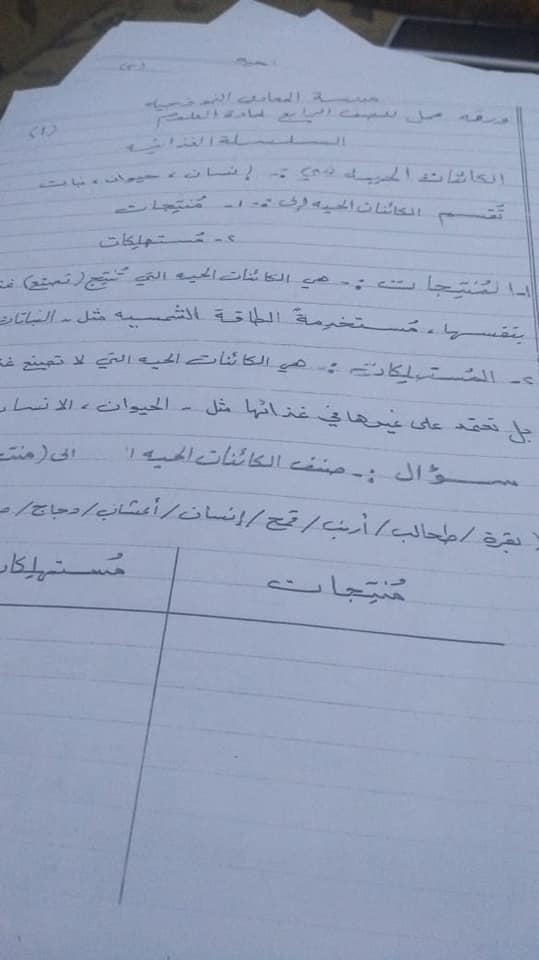 (٢)
مدرسة المعادي النموذجيه
ورقه عمل للصف الرابع لمادة العلوم (١)
السلسلة الغذائيه
الكائنات الحيه هي :- إنسان ، حيوان ، نبات
تُقسم الكائنات الحيه إلى :- ١- مُنتِجات
٢- مُستهلِكات
١- المُنتِجات :- هي الكائنات الحيه التي تُنتِج (تصنع)
بنفسها ، مُستخدِمةً الطاقة الشمسيه مثل - النباتات
٢- المُستهلِكات :- هي الكائنات الحيه التي لا تصنع
بل تعتمد على غيرها في غذائها مثل - الحيوان ، الانسان
سؤال :- صنف الكائنات الحيه الى
بقرة / طحالب / أرنب / قمح / إنسان / أعشاب / دجاج /
مُنتِجات مُستهلِكات